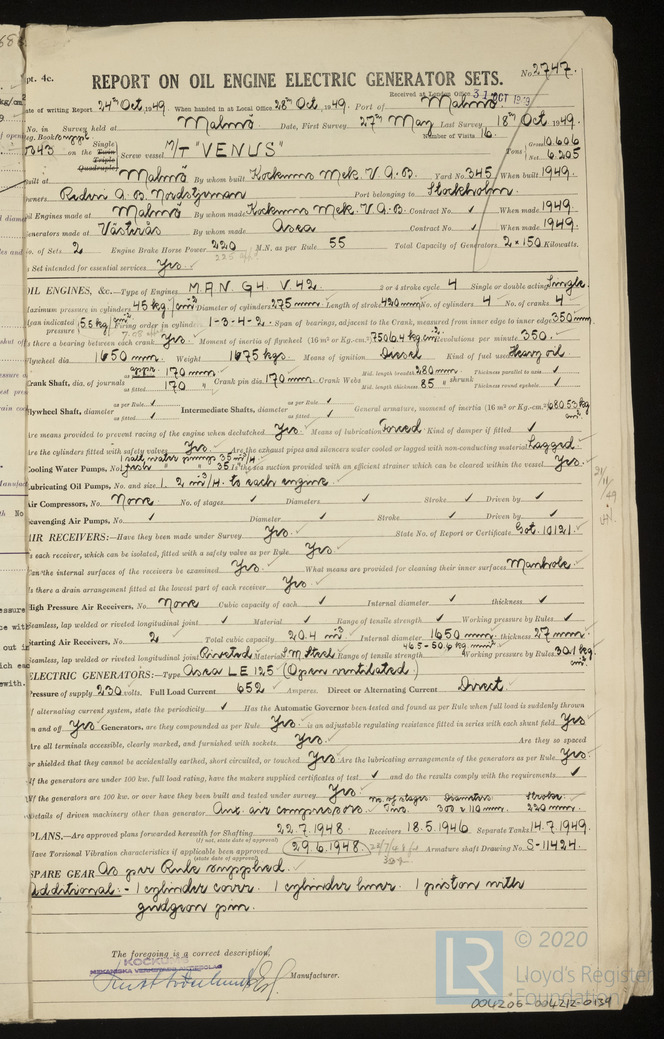 pt. 4c.
REPORT ON OIL ENGINE ELECTRIC GENERATOR SETS.
No. 2747.
Received at London Office 31 OCT 1949
ate of writing Report 24th Oct, 1949. When handed in at Local Office 28th Oct, 1949. Port of Malmö
No. in Survey held at Malmö Date, First Survey 27th May Last Survey 18th Oct 1949.
Reg. Book Number of Visits 16.
043 on the Single Twin Triple Quadruple Screw vessel M/T "VENUS" Tons Gross 10.606 Net 6.205
uilt at Malmö By whom built Kockums Mek. V. A.B. Yard No. 345 When built 1949.
wners Rederi A.B. Nordstjernan Port belonging to Stockholm.
il Engines made at Malmö By whom made Kockums Mek. V. A.B. Contract No. ✓ When made 1949
enerators made at Västerås By whom made Asea Contract No. ✓ When made 1949.
o. of Sets 2 Engine Brake Horse Power 220 M.N. as per Rule 55 Total Capacity of Generators 2 × 150 Kilowatts.
s Set intended for essential services Yes.
OIL ENGINES, &c.—Type of Engines M.A.N. G4 V.42 2 or 4 stroke cycle 4 Single or double acting Single.
aximum pressure in cylinders 45 kg/cm² Diameter of cylinders 275 mm Length of stroke 420 mm No. of cylinders 4 No. of cranks 4
ean indicated pressure 5.5 kg/cm² Firing order in cylinders 1-3-4-2. Span of bearings, adjacent to the Crank, measured from inner edge to inner edge 350 mm
s there a bearing between each crank Yes. Moment of inertia of flywheel (16 m² or Kg.-cm.² 7506.4 kg.cm². Revolutions per minute 350.
lywheel dia. 1650 mm. Weight 1675 kgs Means of ignition Diesel Kind of fuel used Heavy oil
Crank Shaft, dia. of journals appr. 170 mm as fitted 170 " Crank pin dia. 170 mm. Crank Webs Mid. length breadth 280 mm. Thickness parallel to axis ✓
Mid. length thickness 85 " shrunk Thickness round eyehole ✓
lywheel Shaft, diameter as per Rule ✓ as fitted ✓ Intermediate Shafts, diameter as per Rule ✓ as fitted ✓ General armature, moment of inertia (16 m² or Kg.-cm.² 68053 kg cm²
Are means provided to prevent racing of the engine when declutched. Yes. Means of lubrication Forced Kind of damper if fitted ✓
Are the cylinders fitted with safety valves Yes Are the exhaust pipes and silencers water cooled or lagged with non-conducting material Lagged
Cooling Water Pumps, No. 1 salt water pump 35 m³/h. 1 fresh " " 35 Is the sea suction provided with an efficient strainer which can be cleared within the vessel Yes.
Lubricating Oil Pumps, No. and size 1. 2 m³/h. to each engine.
Air Compressors, No. None No. of stages ✓ Diameters ✓ Stroke ✓ Driven by ✓
cavenging Air Pumps, No. ✓ Diameter ✓ Stroke ✓ Driven by ✓
AIR RECEIVERS:—Have they been made under Survey Yes. State No. of Report or Certificate Got. 10121.
s each receiver, which can be isolated, fitted with a safety valve as per Rule Yes
Can the internal surfaces of the receivers be examined Yes. What means are provided for cleaning their inner surfaces Manhole
s there a drain arrangement fitted at the lowest part of each receiver Yes.
High Pressure Air Receivers, No. None Cubic capacity of each ✓ Internal diameter ✓ thickness ✓
Seamless, lap welded or riveted longitudinal joint ✓ Material ✓ Range of tensile strength ✓ Working pressure by Rules ✓
Starting Air Receivers, No. 2 Total cubic capacity 20.4 m³ Internal diameter 1650 mm. thickness 27 mm.
Seamless, lap welded or riveted longitudinal joint Riveted Material S.M. Steel Range of tensile strength 46.5-50.6 kg/mm² Working pressure by Rules 30.1 kg/cm².
ELECTRIC GENERATORS:—Type Asea LE 125 (Open ventilated.)
Pressure of supply 230 volts. Full Load Current 652 Amperes. Direct or Alternating Current Direct.
f alternating current system, state the periodicity ✓ Has the Automatic Governor been tested and found as per Rule when full load is suddenly thrown
n and off Yes Generators, are they compounded as per Rule Yes is an adjustable regulating resistance fitted in series with each shunt field Yes
Are all terminals accessible, clearly marked, and furnished with sockets Yes. Are they so spaced
or shielded that they cannot be accidentally earthed, short circuited, or touched Yes. Are the lubricating arrangements of the generators as per Rule Yes.
If the generators are under 100 kw. full load rating, have the makers supplied certificates of test ✓ and do the results comply with the requirements ✓
If the generators are 100 kw. or over have they been built and tested under survey Yes.
Details of driven machinery other than generator Aux. air compressors. No. of stages Two. Diameters 300 × 110 mm. Stroke: 220 mm.
PLANS.—Are approved plans forwarded herewith for Shafting 22.7.1948. Receivers 18.5.1946 Separate Tanks 14.7.1949.
(If not, state date of approval)
Have Torsional Vibration characteristics if applicable been approved (29.6.1948) Armature shaft Drawing No. S-11424.
(state date of approval)
SPARE GEAR As per Rule supplied.
Additional: - 1 cylinder cover. 1 cylinder liner. 1 piston with
gudgeon pin.
The foregoing is a correct description,
KOCKUMS
MEKANISKA VERKSTADS AKTIEBOLAG
Manufacturer.
LR © 2020
Lloyd's Register
Foundation
004206-004212-0139